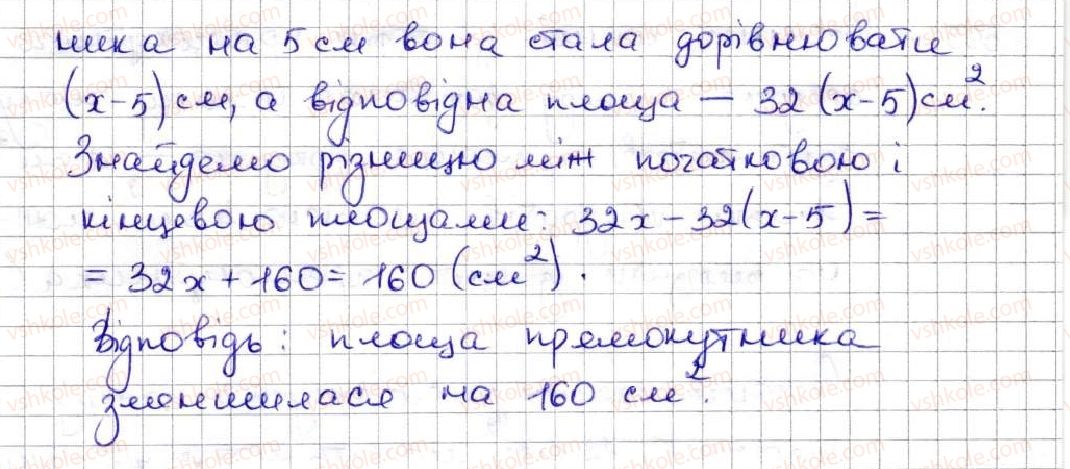 ника на 5 см вона стала дорівнювати
(x-5) см, а відповідна площа — 32(x-5) см².
Знайдемо різницю між початковою і
кінцевою площами: 32x - 32(x-5) =
= 32x + 160 = 160 (см²).
Відповідь: площа прямокутника
зменшилася на 160 см².